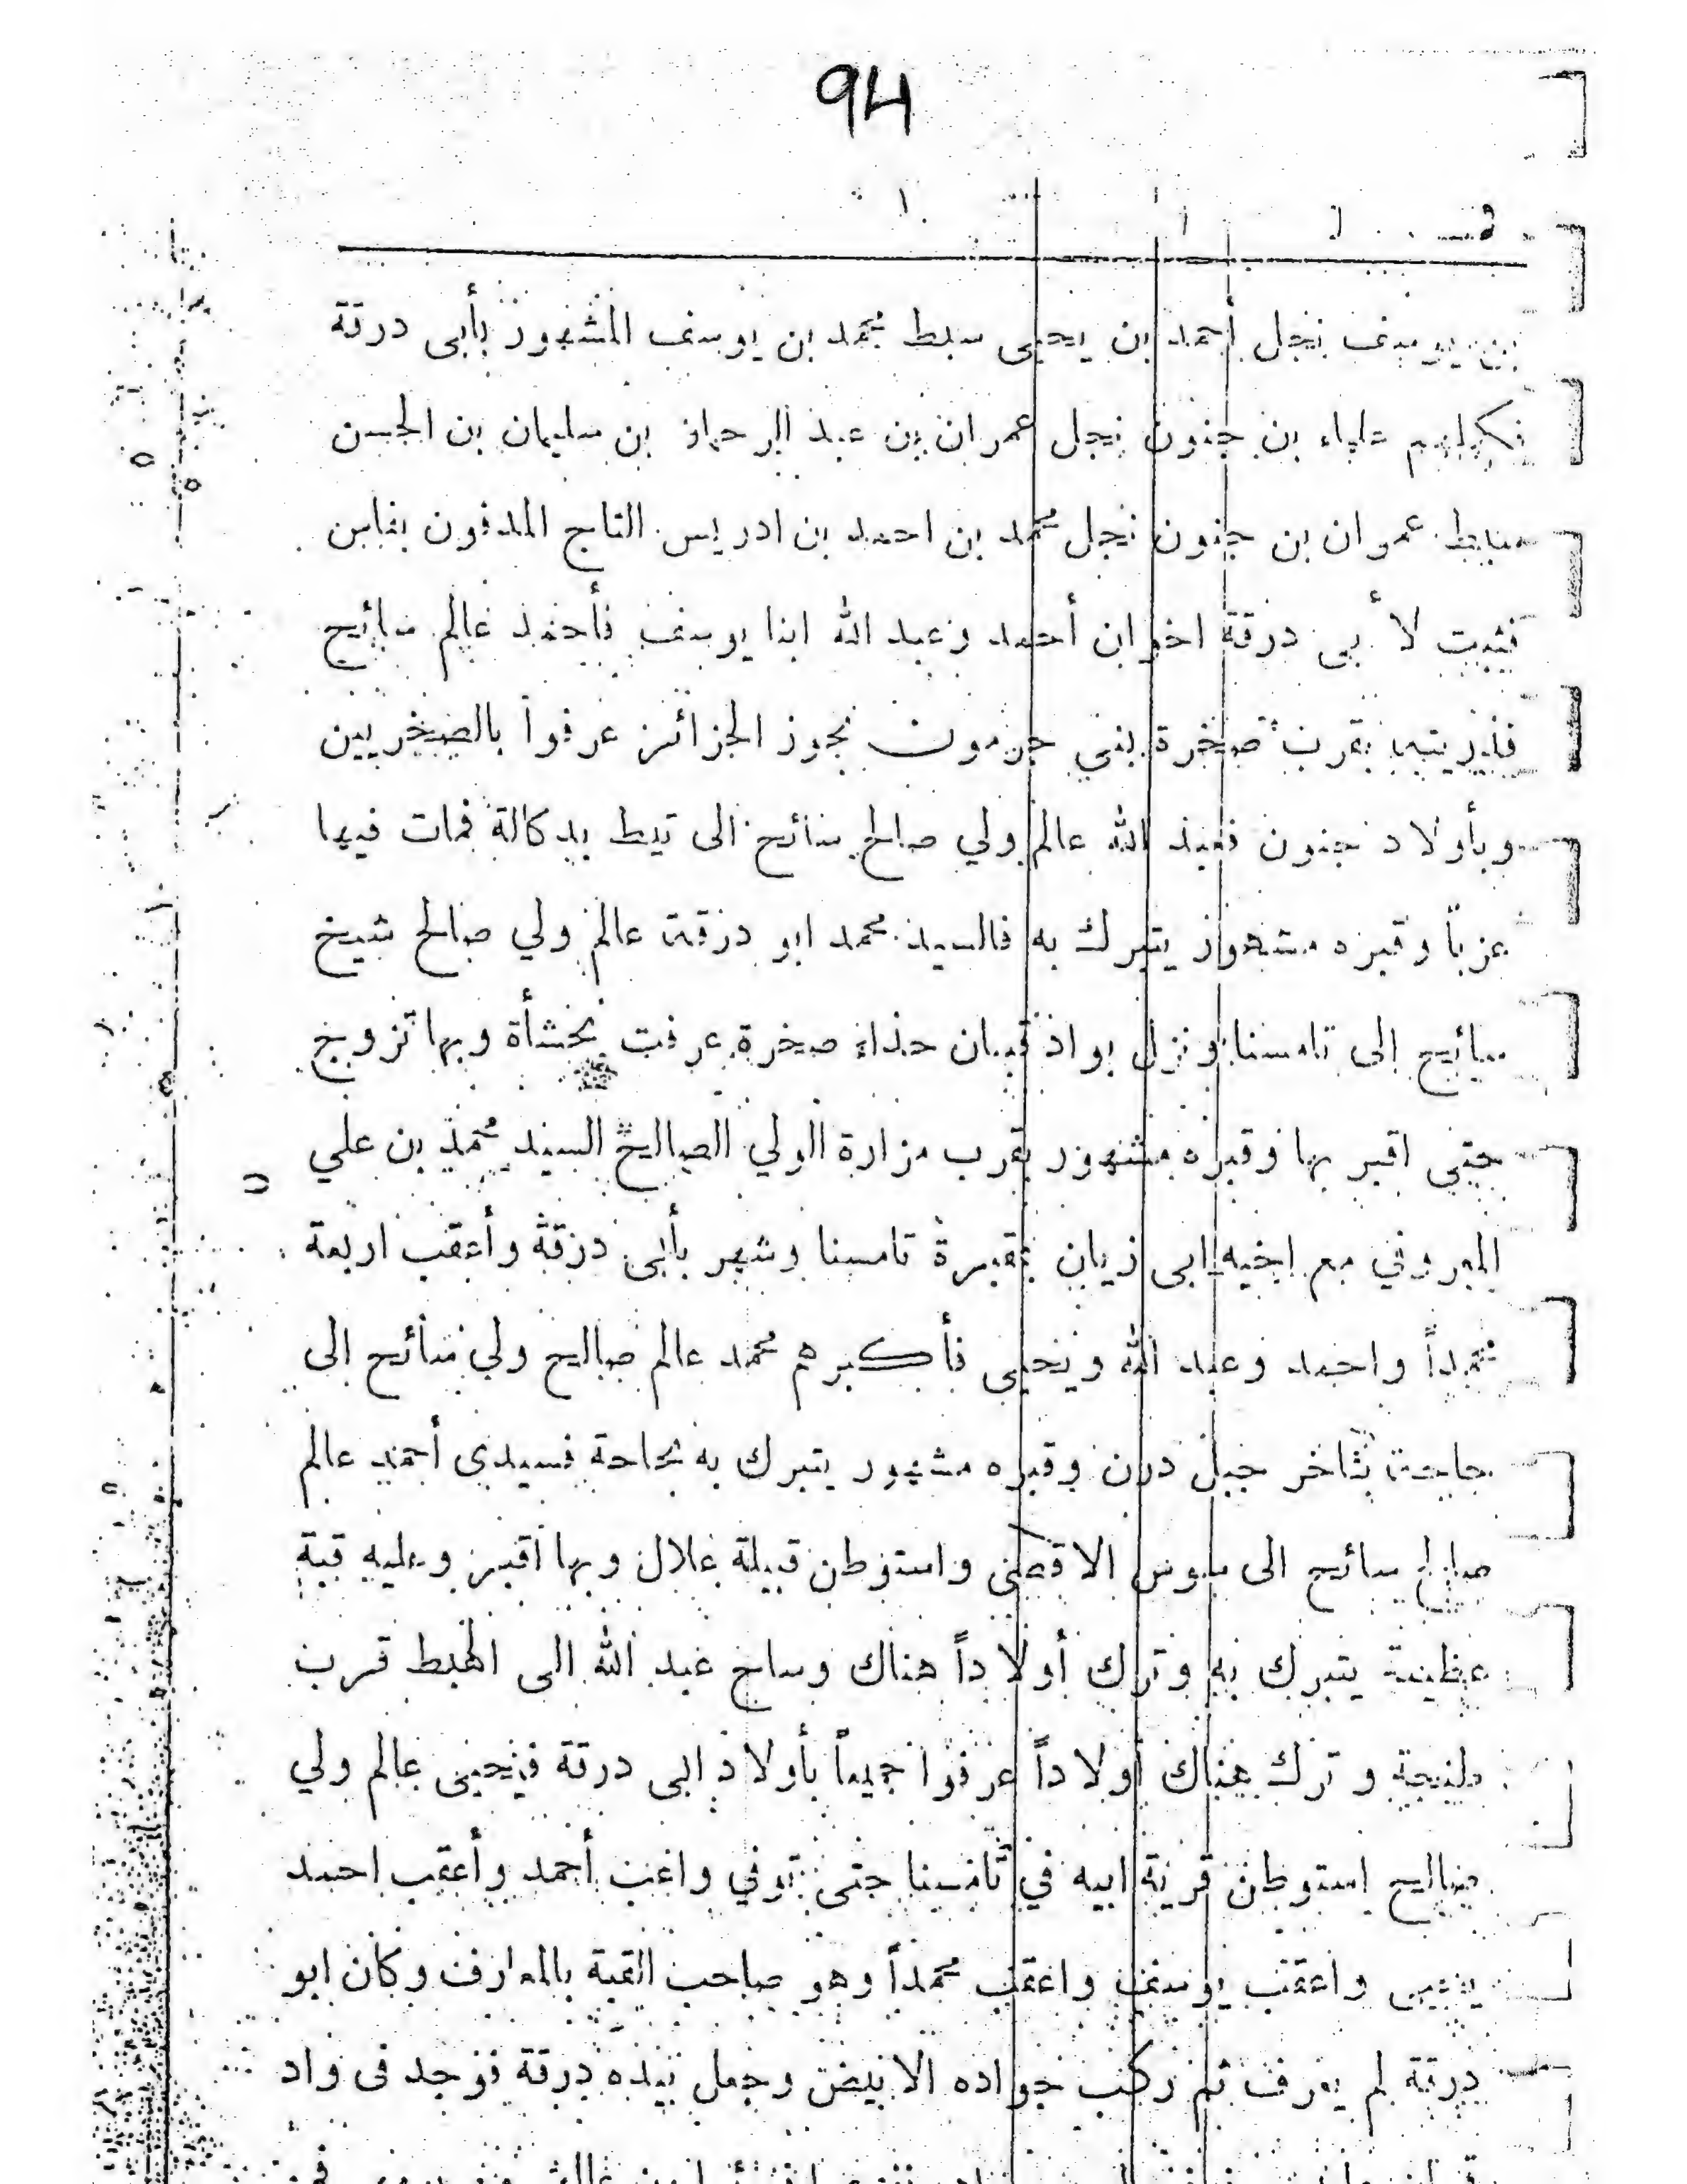 94
بن يوسف نجل أحمد بن يحيى سبط محمد بن يوسف المشهور بأبى درقة
علياء بن جنون نجل عمران بن عبد الرحمان بن سليمان بن الحسن
سبط عمران بن جنون نجل محمد بن احمد بن ادريس التاج المدفون بفاس
فثبت لأبى درقة اخوان أحمد وعبد الله ابنا يوسف فأحمد عالم سائح
فذريته بقرب صخرة بنى جرمون بحوز الجزائر عرفوا بالصخريين
وبأولاد جنون فعبد الله عالم ولي صالح سائح الى تيط بدكالة فمات فيها
عزباً وقبره مشهور يتبرك به فالسيد محمد ابو درقة عالم ولي صالح شيخ
سائح الى تامسنا ونزل بواد حذاء صخرة عرفت بخشأة وبها تزوج
حتى اقبر بها وقبره مشهور بقرب مزارة الولي الصالح السيد محمد بن علي
المعروفي مع اخيه ابى زيان بمقبرة تامسنا وشهر بأبى درقة وأعقب اربعة
محمداً واحمد وعبد الله ويحيى فأكبرهم محمد عالم صالح ولي سائح الى
حاحة بئاخر جبل درن وقبره مشهور يتبرك به بحاحة فسيدى أحمد عالم
صالح سائح الى سوس الاقصى واستوطن قبيلة علال وبها اقبر وعليه قبة
عظيمة يتبرك به وترك أولاداً هناك وساح عبد الله الى الهبط قرب
طنجة وترك هناك أولاداً عرفوا جميعاً بأولاد ابى درقة فيحيى عالم ولي
صالح استوطن قرية ابيه في تامسنا حتى توفي واعقب أحمد وأعقب احمد
يحيى واعقب يوسف واعقب محمداً وهو صاحب القبة بالمعارف وكان ابو
درقة لم يعرف ثم ركب جواده الابيض وجعل بيده درقة فوجد فى واد